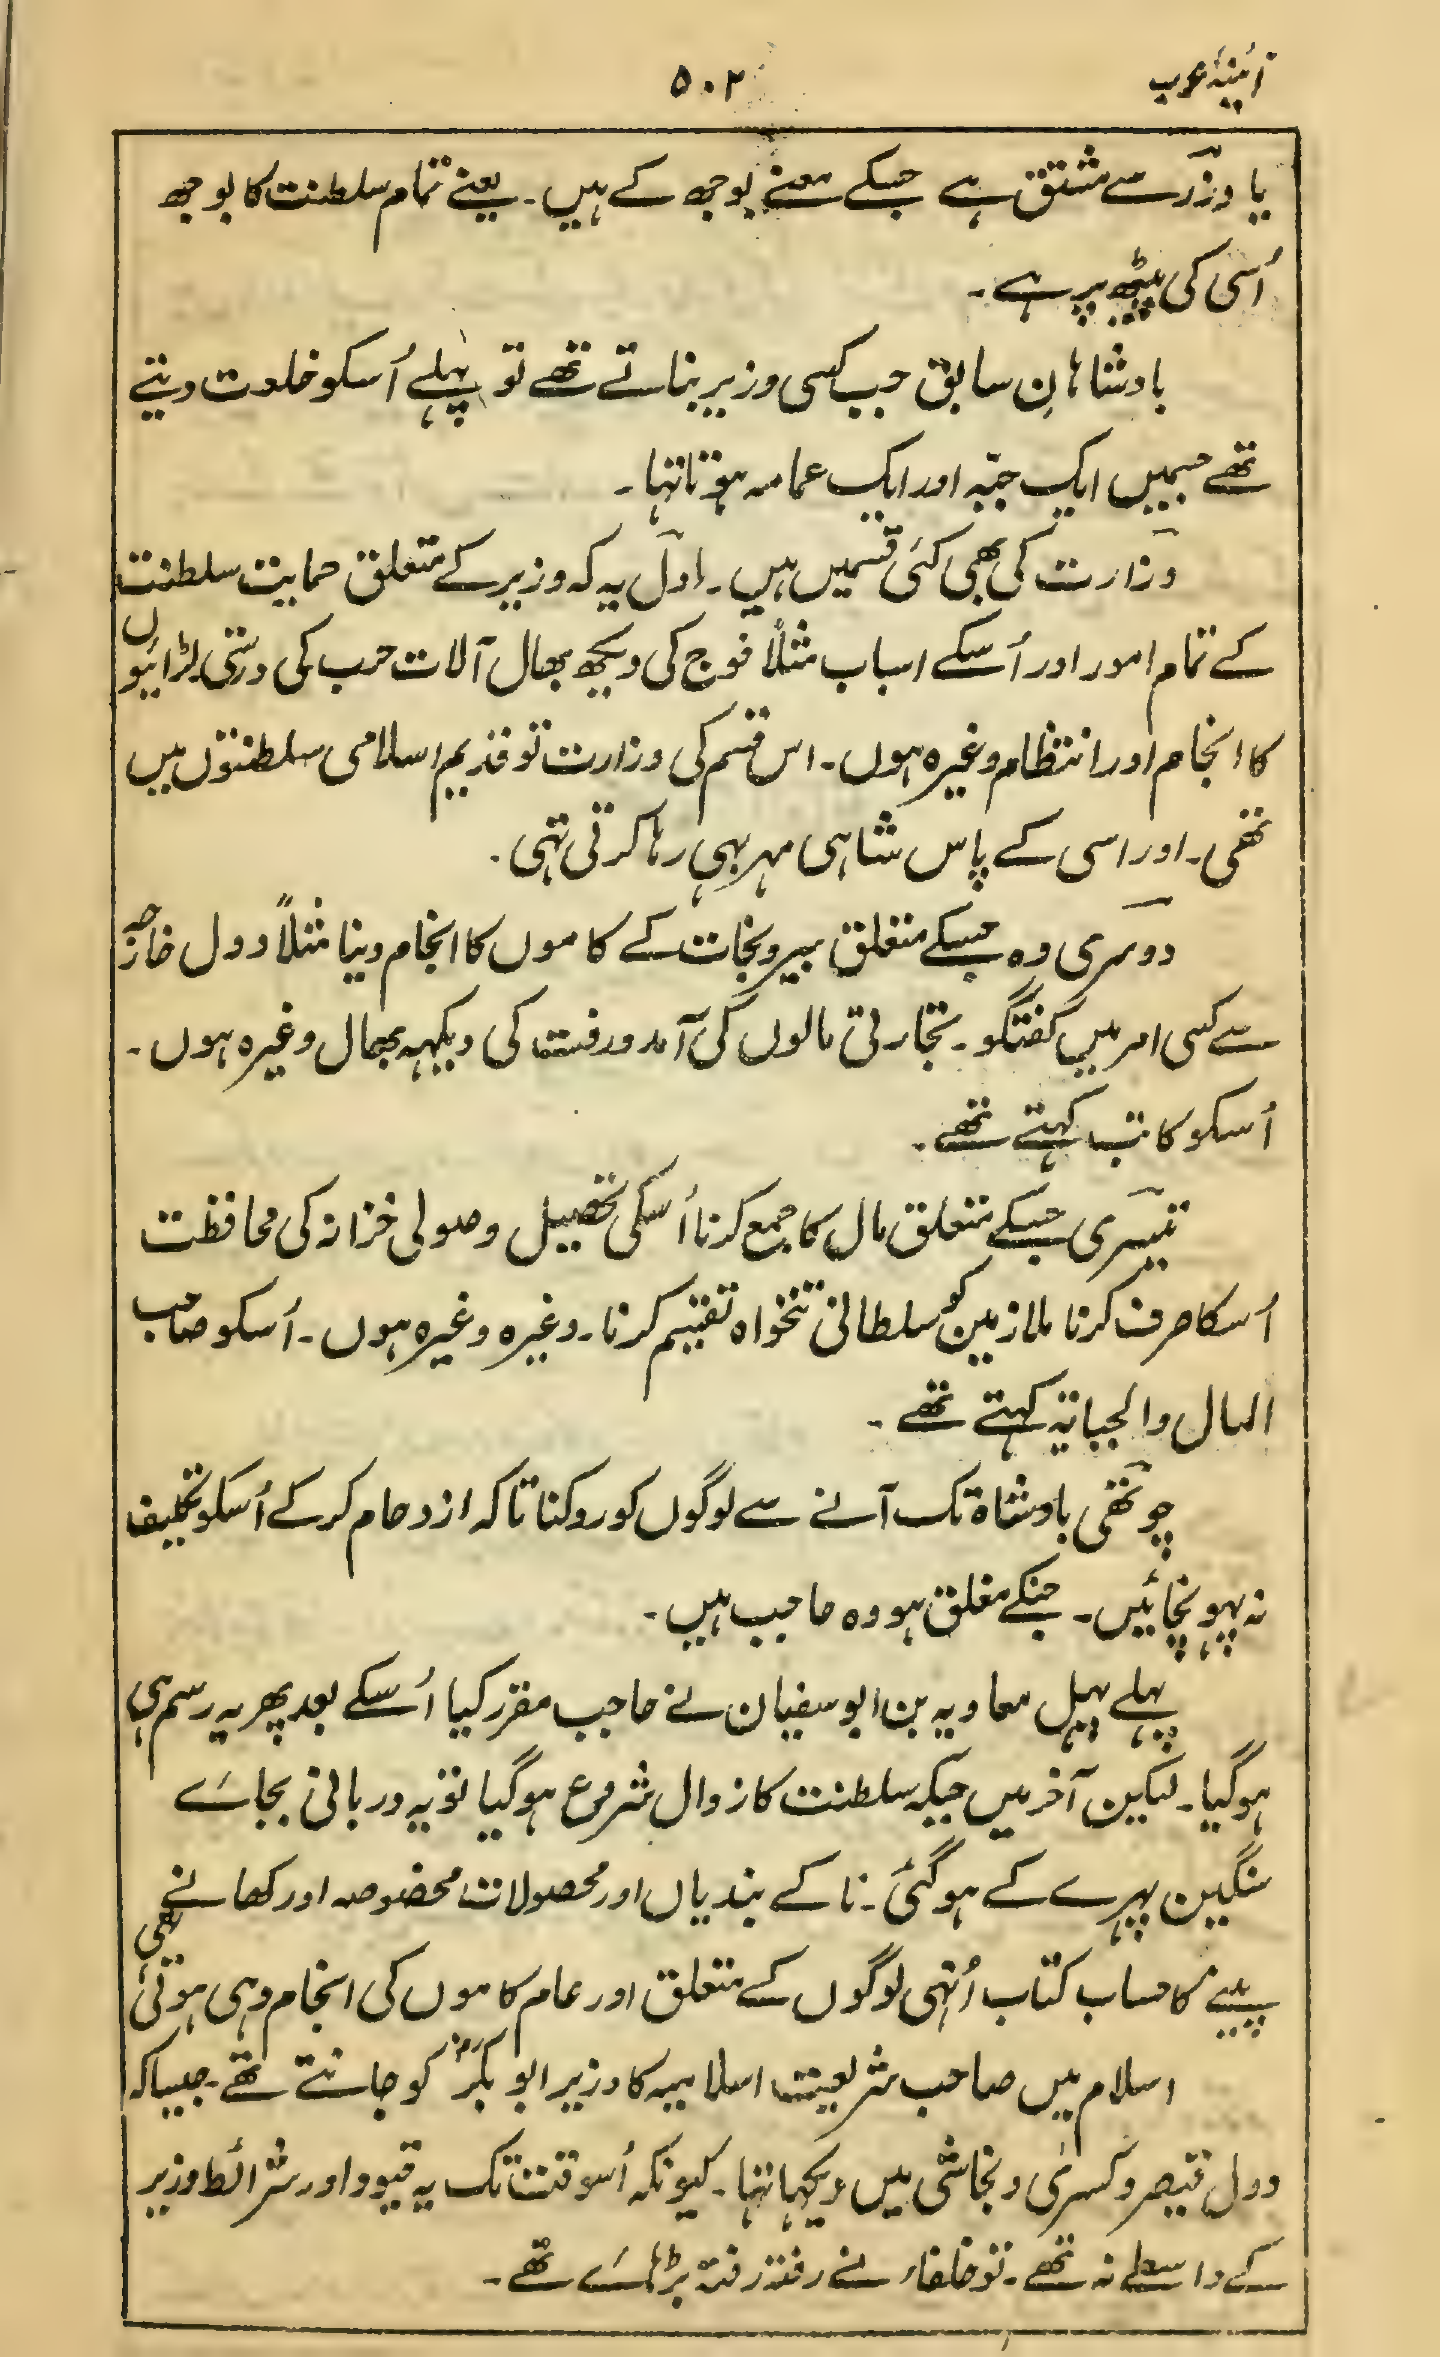 آئینۂ عرب
۵۰۲
یا وزر سے مشتق ہے جسکے معنے بوجھ کے ہیں۔ یعنے تمام سلطنت کا بوجھ
اُسی کی پیٹھ پر ہے۔
بادشاہانِ سابق جب کسی وزیر بناتے تھے تو پہلے اُسکو خلعت دیتے
تھے جسمیں ایک جبّہ اور ایک عمامہ ہوتا تہا۔
وزارت کی بھی کئی قسمیں ہیں۔ اول یہ کہ وزیر کے متعلق حمایت سلطنت
کے تمام امور اور اُسکے اسباب مثلاً فوج کی دیکھ بھال آلات حرب کی درستی لڑائیوں
کا انجام اور انتظام وغیرہ ہوں۔ اس قسم کی وزارت تو قدیم اسلامی سلطنتوں میں
تھی۔ اور اسی کے پاس شاہی مہر بہی رہا کرتی تہی۔
دوسری وہ جسکے متعلق بیرونجات کے کاموں کا انجام دینا مثلاً دول خارجہ
سے کسی امر میں گفتگو۔ تجارتی مالوں کی آمد و رفت کی دیکہہ بھال وغیرہ ہوں۔
اُسکو کاتب کہتے تھے۔
تیسری جسکے متعلق مال کا جمع کرنا اُسکی تحصیل وصولی خزانہ کی محافظت
اُسکا صرف کرنا ملازمین کو سلطانی تنخواہ تقسیم کرنا۔ وغیرہ وغیرہ ہوں۔ اُسکو صاحب
المال والجبایۃ کہتے تھے۔
چوتھی بادشاہ تک آنے سے لوگوں کو روکنا تاکہ ازدحام کر کے اُسکو تکلیف
نہ پہونچائیں۔ جنکے متعلق ہو وہ حاجب ہیں۔
پہلے پہل معاویہ بن ابو سفیان نے حاجب مقرر کیا اُسکے بعد پھر یہ رسم ہی
ہوگیا۔ لیکن آخر میں جبکہ سلطنت کا زوال شروع ہوگیا تو یہ دربانی بجاے
سنگین پہرے کے ہوگئی۔ ناکے بندیاں اور محصولات مخصوصہ اور کھانے
پینے کا حساب کتاب اُنہی لوگوں کے متعلق اور عام کاموں کی انجام دہی ہوتی تھی
اسلام میں صاحب شریعت اسلامیہ کا وزیر ابو بکرؓ کو جانتے تھے۔ جیسا کہ
دول قیصر و کسریٰ و نجاشی میں دیکہا تہا۔ کیونکہ اُسوقت تک یہ قیود اور شرائط وزیر
کے واسطے نہ تھے۔ تو خلفاء نے رفتہ رفتہ بڑہاے تھے۔